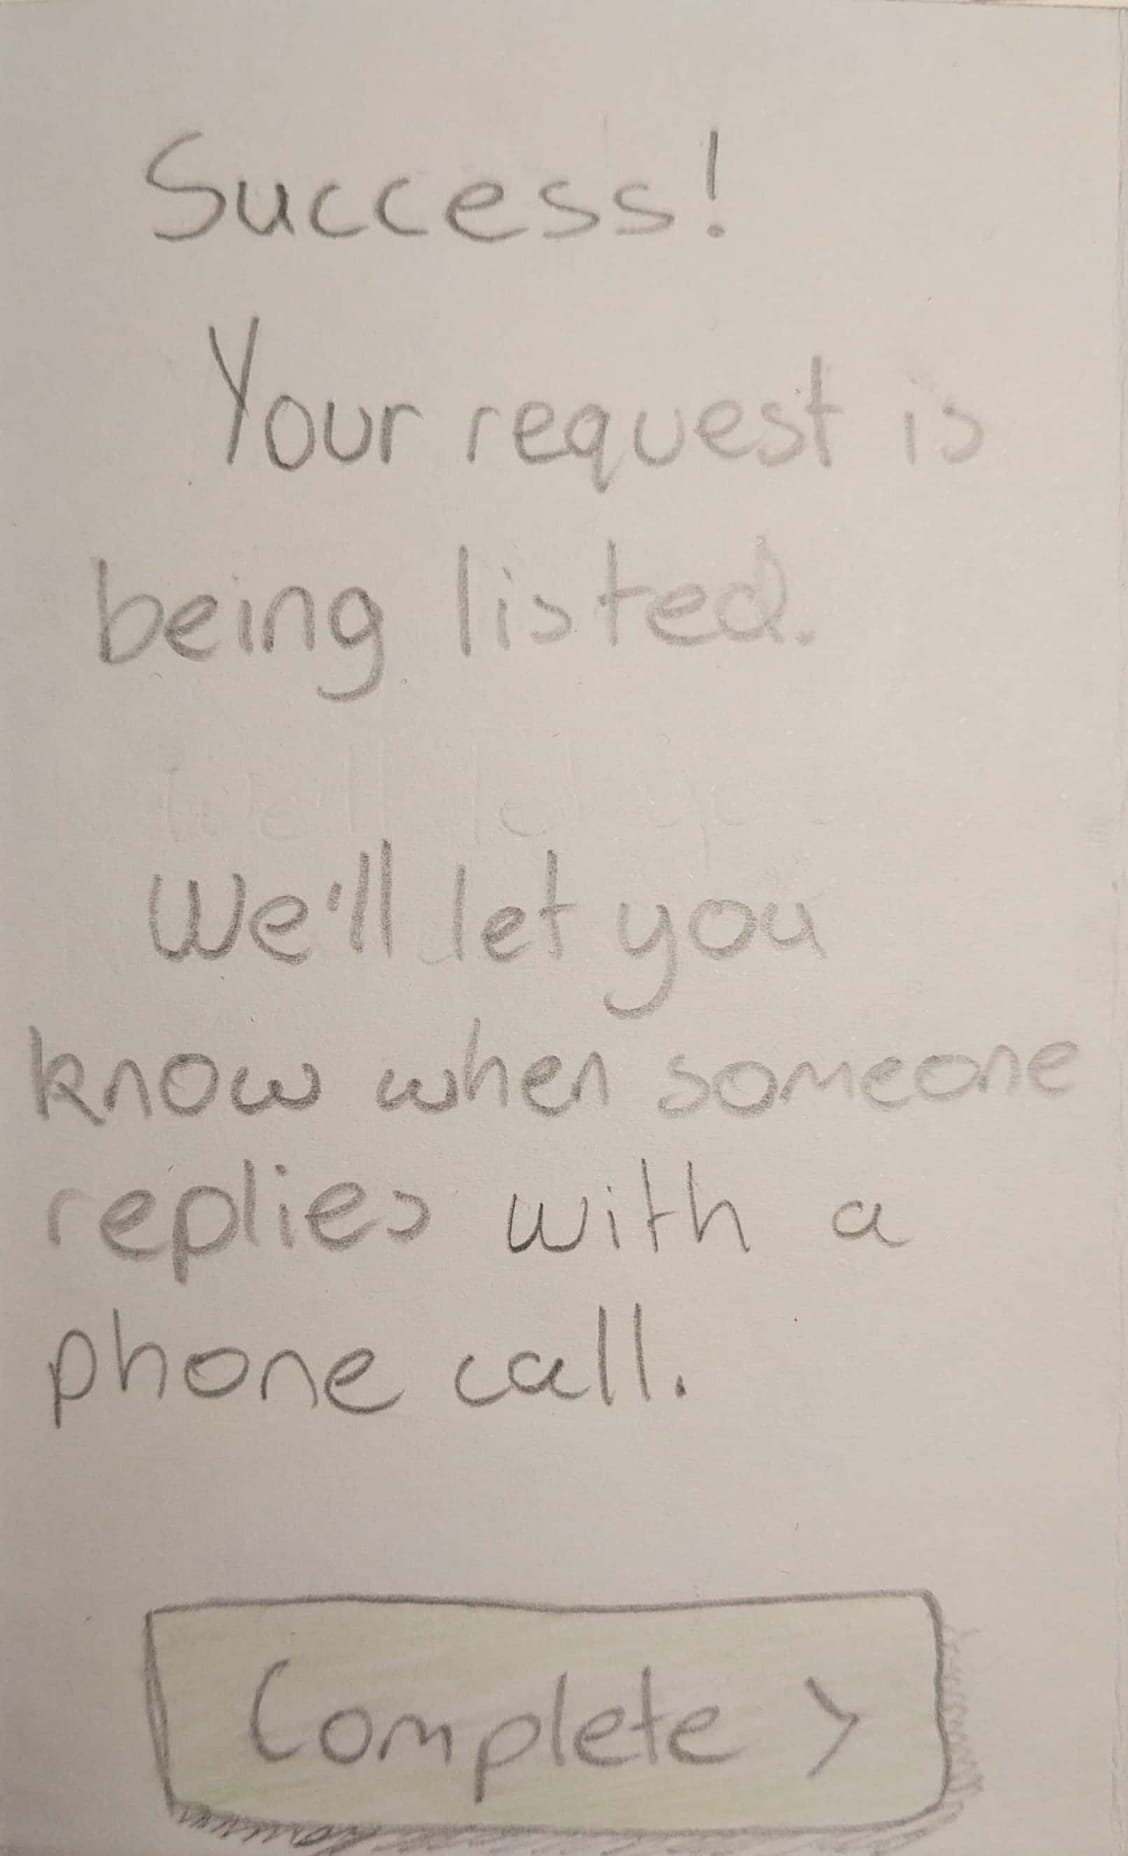 Success!
Your request is
being listed.
We'll let you
know when someone
replies with a
phone call.
Complete >